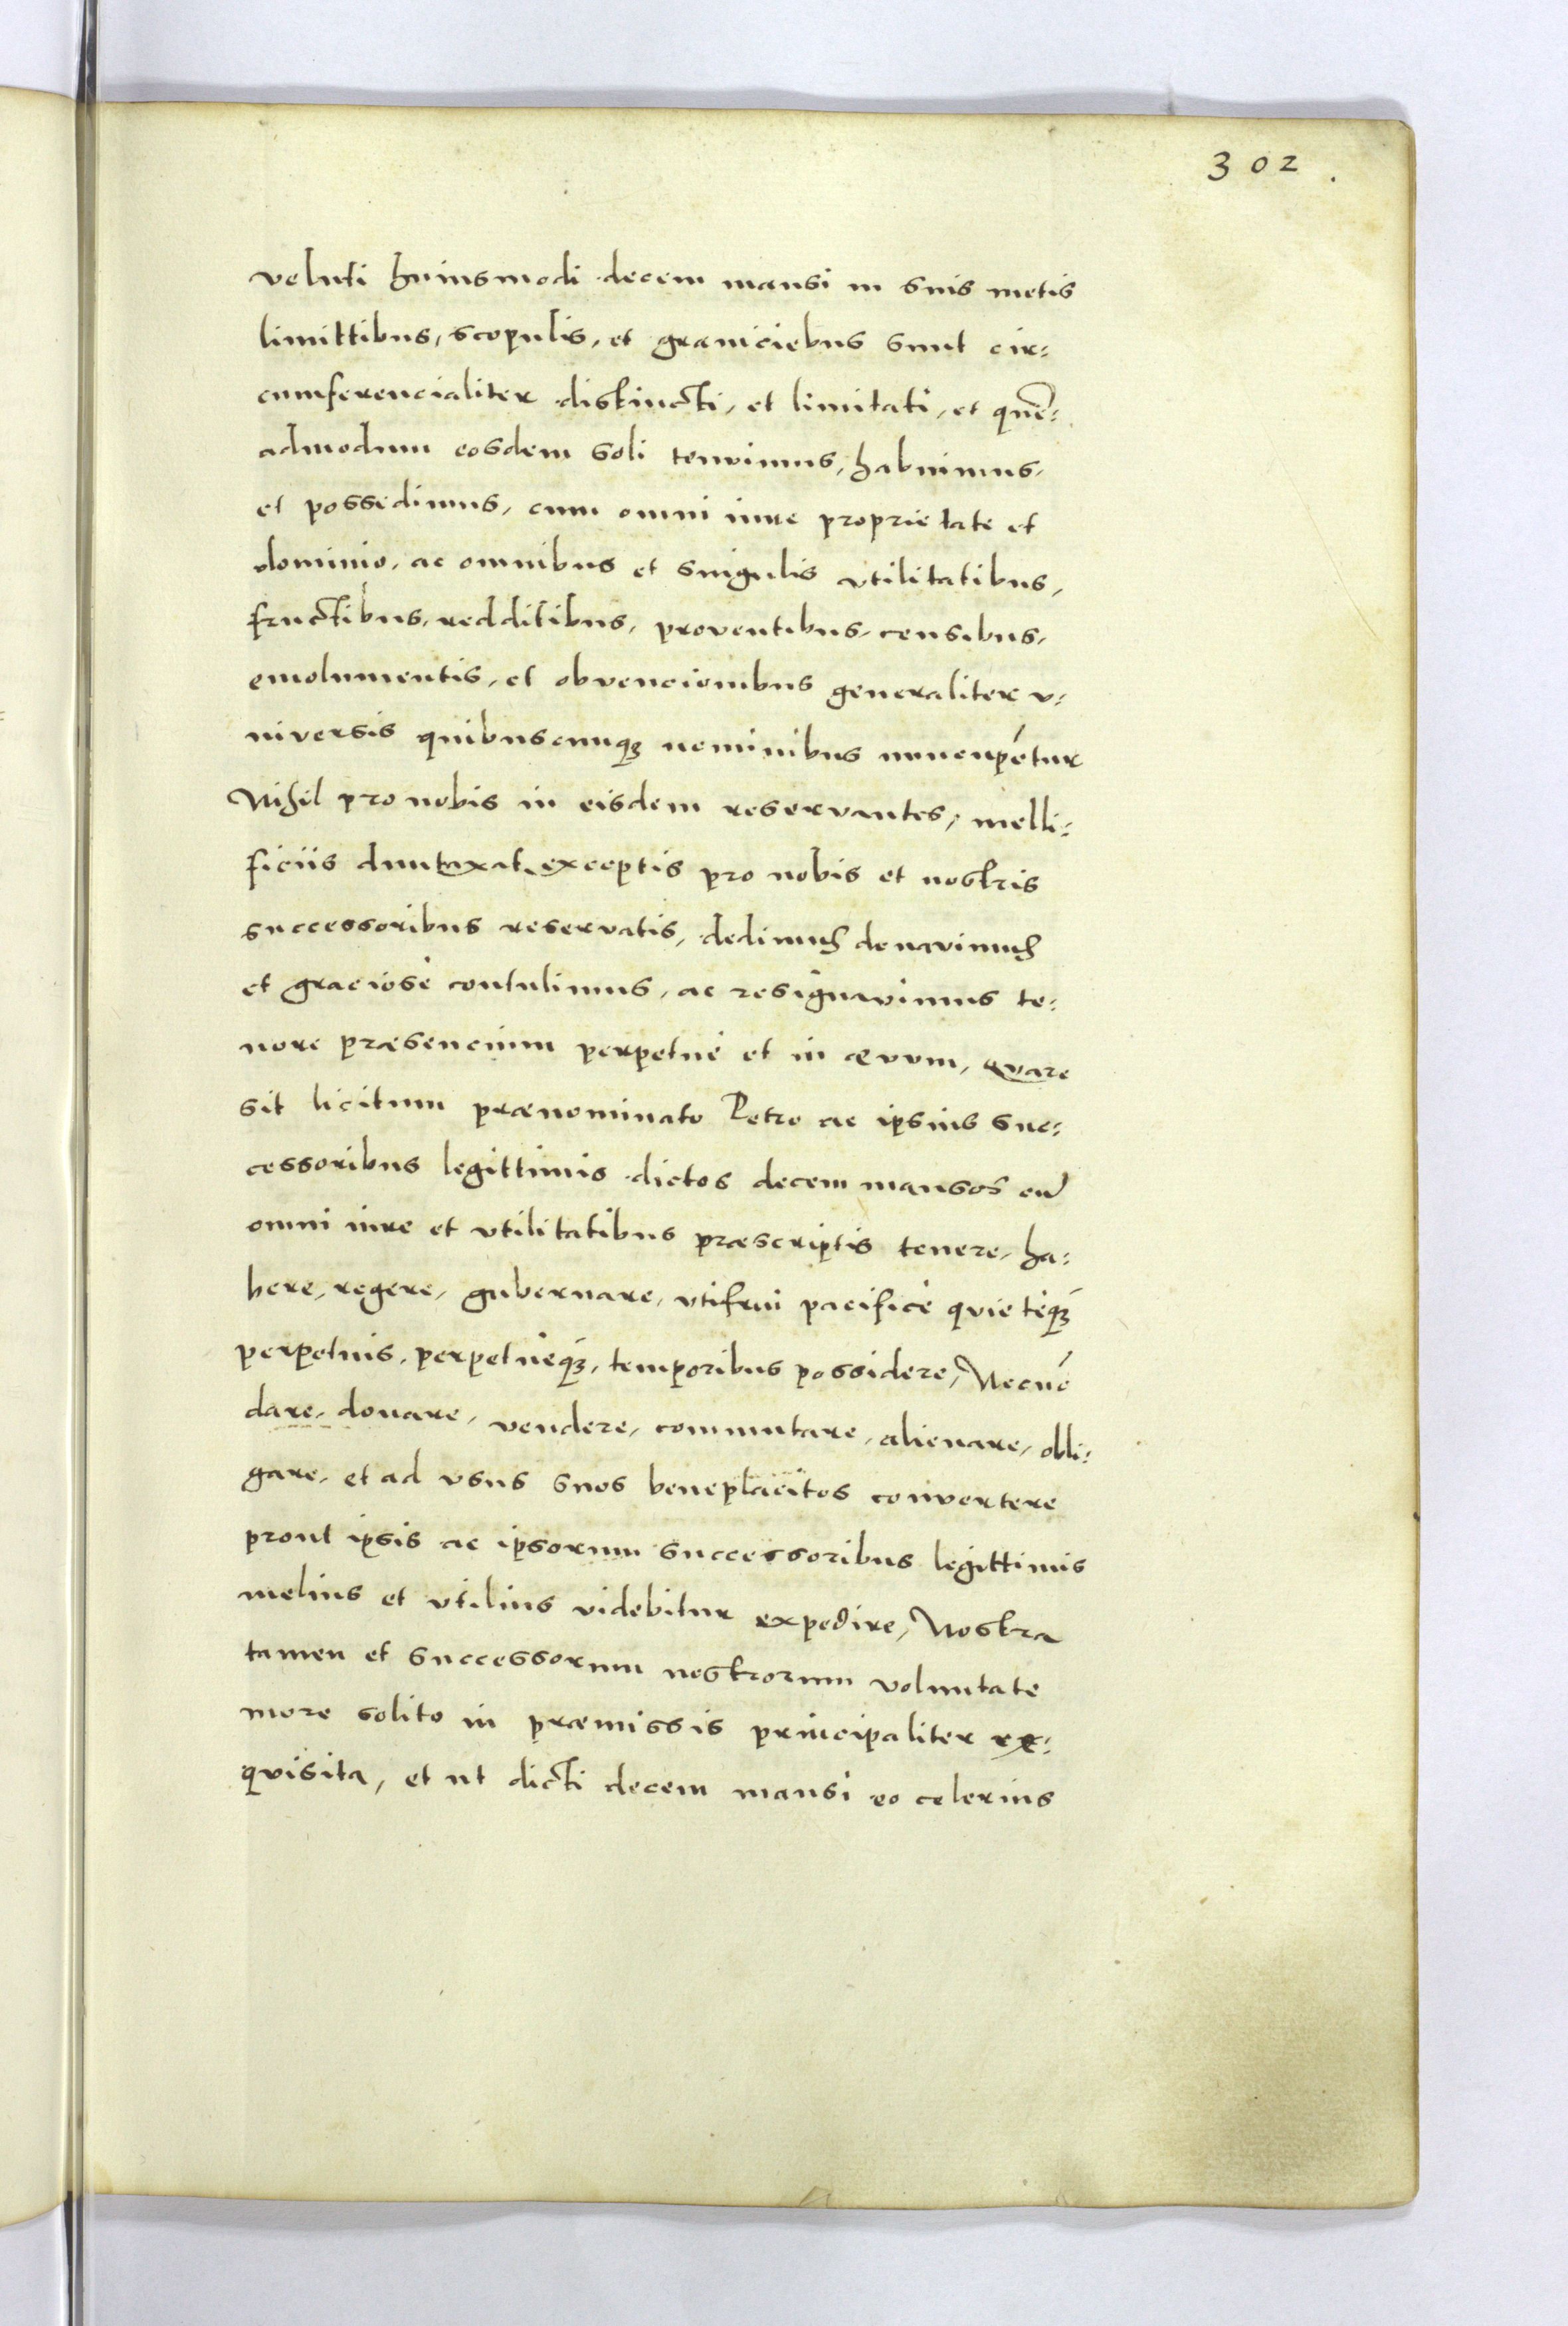 302.
veluti huiusmodi decem mansi in suis metis
limittibus, scopulis, et graniciebus sunt cir-
cumferencialiter distincti, et limitati, et quē-
admodum eosdem soli tenuimus, habuimus,
et possedimus, cum omni iure proprietate et
dominio, ac omnibus et singulis vtilitatibus,
fructibus, redditibus, proventibus, censibus,
emolumentis, et obvencionibus generaliter v-
niversis quibuscunqꝫ nominibus nuncupētur
Nihil pro nobis in eisdem reservantes, melli-
ficiis duntaxat exceptis pro nobis et nostris
successoribus reservatis, dedimus donavimus
et graciosè contulimus, ac resignavimus te-
nore præsencium perpetuè et in ævvm, Qvare
sit licitum prænominato Petro ac ipsius suc-
cessoribus legittimis dictos decem mansos cū
omni iure et vtilitatibus præscriptis tenere, ha-
bere, regere, gubernare, vtifrui pacificè qvietèqꝫ
perpetuis, perpetuèqꝫ, temporibus possidere, Necnō
dare, donare, vendere, commutare, alienare, obli-
gare, et ad vsus suos beneplacitos convertere
prout ipsis ac ipsorum successoribus legittimis
melius et vtilius videbitur expedire, Nostra
tamen et successorum nostrorum voluntate
more solito in præmissis principaliter re-
qvisita, et ut dicti decem mansi eo celerius